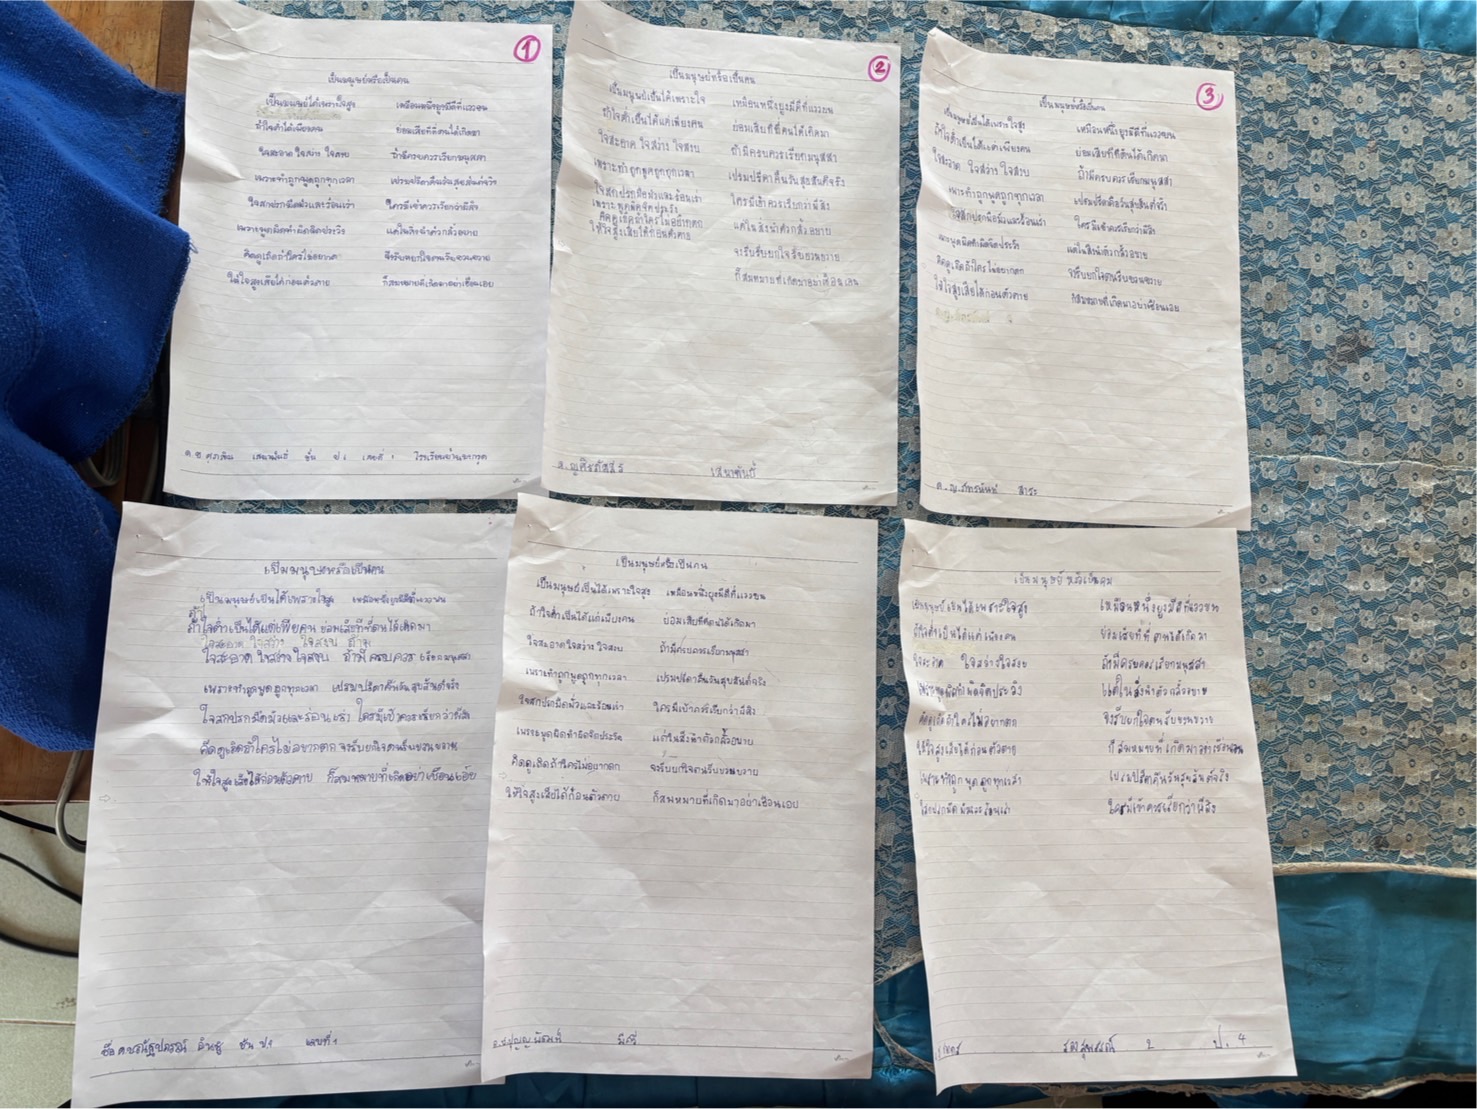 1
เป็นมนุษย์หรือเป็นคน
เป็นมนุษย์ได้เพราะใจสูง เหมือนหนึ่งยูงมีดีที่แววขน
ถ้าใจต่ำได้เพียงคน ย่อมเสียทีที่ตนได้เกิดมา
ใจสะอาด ใจสว่าง ใจสงบ ถ้ามีครบควรเรียกมนุสสา
เพราะทำถูกพูดถูกทุกเวลา เปรมปรีดาคืนวันสุขสันต์จริง
ใจสกปรกมืดมัวและร้อนเร่า ใครมีเข้าควรเรียกว่าผีสิง
เพราะพูดผิดทำผิดจิตประวิง แต่ในสิ่งนำตัวกลั้วอบาย
คิดดูเถิดถ้าใครไม่อยากตก จงรีบยกใจตนรีบขวนขวาย
ให้ใจสูงเสียได้ก่อนตัวตาย ก็สมหมายที่เกิดมาอย่าเชือนเอย
ด.ช. ชั้น ป.6 เลขที่ 1
2
เป็นมนุษย์หรือเป็นคน
เป็นมนุษย์เป็นได้เพราะใจ เหมือนหนึ่งยูงมีดีที่แววขน
ถ้าใจต่ำเป็นได้แต่เพียงคน ย่อมเสียทีที่ตนได้เกิดมา
ใจสะอาด ใจสว่าง ใจสงบ ถ้ามีครบควรเรียกมนุสสา
เพราะทำถูกพูดถูกทุกเวลา เปรมปรีดาคืนวันสุขสันต์จริง
ใจสกปรกมืดมัวและร้อนเร่า ใครมีเข้าควรเรียกว่าผีสิง
เพราะพูดผิดจิตประวิง แต่ในสิ่งนำตัวกลั้วอบาย
คิดดูเถิดถ้าใครไม่อยากตก จงรีบรีบยกใจรีบขวนขวาย
ให้ใจสูงเสียได้ก่อนตัวตาย ก็สมหมายที่เกิดมาอย่าเชือนเอย
ด.ญ. เสนาพันธ์
3
เป็นมนุษย์หรือเป็นคน
เป็นมนุษย์เป็นได้เพราะใจสูง เหมือนหนึ่งยูงมีดีที่แววขน
ถ้าใจต่ำเป็นได้แต่เพียงคน ย่อมเสียทีที่ตนได้เกิดมา
ใจสะอาด ใจสว่าง ใจสงบ ถ้ามีครบควรเรียกมนุสสา
เพราะทำถูกพูดถูกทุกเวลา เปรมปรีดาคืนวันสุขสันต์จริง
ใจสกปรกมืดมัวและร้อนเร่า ใครมีเข้าควรเรียกว่าผีสิง
เพราะพูดผิดทำผิดจิตประวิง แต่ในสิ่งนำตัวกลั้วอบาย
คิดดูเถิดถ้าใครไม่อยากตก จงรีบยกใจตนรีบขวนขวาย
ให้ใจสูงเสียได้ก่อนตัวตาย ก็สมหมายที่เกิดมาอย่าเชือนเอย
ด.ญ. สาระ
เป็นมนุษยหรือเป็นคน
เป็นมนุษย์เป็นได้เพราะใจสูง เหมือนหนึ่งยูงมีดีที่แววขน
ถ้าใจ
ถ้าใจต่ำเป็นได้แต่เพียคน ย่อมเสียทีที่ตนได้เกิดมา
ใจสะอาด ใจสว่าง ใจสงบ ถ้ามี
ใจสะอาด ใจสว่าง ใจสงบ ถ้ามี ครบควร เรียกมนุสสา
เพราะทำถูกพูดถูกทุกเวลา เปรมปรีดาคืนวันสุขสันต์จริง
ใจสกปรกมืดมัวและร้อนเร่า ใครมีเข้าควรเรียกว่าผีสิง
คิดดูเถิดถ้าใครไม่อยากตก จงรีบยกใจตนรีบขวนขวาย
ให้ใจสูงเสียได้ก่อนตัวตาย ก็สมหมายที่เกิดอย่าเชือนเอ้ย
ชื่อ ชั้น ป.6 เลขที่ 1
เป็นมนุษย์หรือเป็นคน
เป็นมนุษย์เป็นได้เพราะใจสูง เหมือนหนึ่งยูงมีดีที่แววขน
ถ้าใจต่ำเป็นได้แต่เพียงคน ย่อมเสียทีที่ตนได้เกิดมา
ใจสะอาดใจสว่าง ใจสงบ ถ้ามีครบควรเรียกมนุสสา
เพราะทำถูกพูดถูกทุกเวลา เปรมปรีดาคืนวันสุขสันต์จริง
ใจสกปรกมืดมัวและร้อนเร่า ใครมีเข้าควรเรียกว่าผีสิง
เพราะพูดผิดทำผิดจิตประวิง แต่ในสิ่งนำตัวกลั้วอบาย
คิดดูเถิดถ้าใครไม่อยากตก จงรีบยกใจตนรีบขวนขวาย
ให้ใจสูงเสียได้ก่อนตัวตาย ก็สมหมายที่เกิดมาอย่าเชือนเอย
มีศรี
เป็นมนุษย์หรือเป็นคน
เป็นมนุษย์เป็นได้เพราะใจสูง เหมือนหนึ่งยูงมีดีที่แววขน
ถ้าใจต่ำเป็นได้แต่เพียงคน ย่อมเสียทีที่ตนได้เกิดมา
ใจสะอาด ใจสว่างใจสงบ ถ้ามีครบควรเรียกมนุสสา
เพราะพูดผิดทำผิดจิตประวิง แต่ในสิ่งนำตัวกลั้วอบาย
คิดดูเถิดถ้าใครไม่อยากตก จงรีบยกใจตนรีบขวนขวาย
ให้ใจสูงเสียได้ก่อนตัวตาย ก็สมหมายที่เกิดมาอย่าเชือนเอย
เพราะทำถูกพูดถูกทุกเวลา เปรมปรีดาคืนวันสุขสันต์จริง
ใจสกปรกมืดมัวและร้อนเร่า ใครมีเข้าควรเรียกว่าผีสิง
2 ป.4